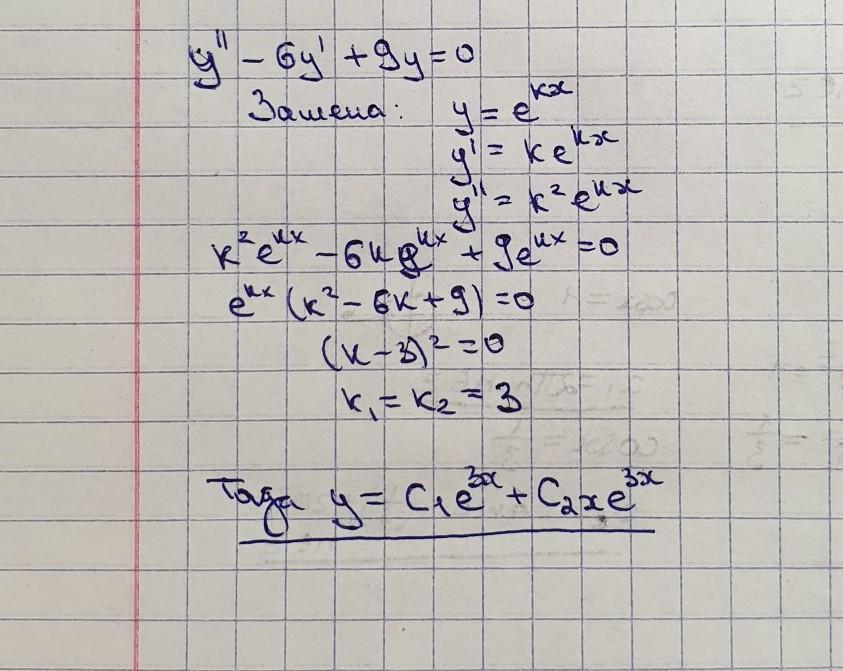 y'' - 6y' + 9y = 0
Замена: y = e^{kx}
y' = ke^{kx}
y'' = k²e^{kx}
k²e^{kx} - 6ke^{kx} + 9e^{kx} = 0
e^{kx}(k² - 6k + 9) = 0
(k - 3)² = 0
k₁ = k₂ = 3
Тогда y = C₁e^{3x} + C₂xe^{3x}